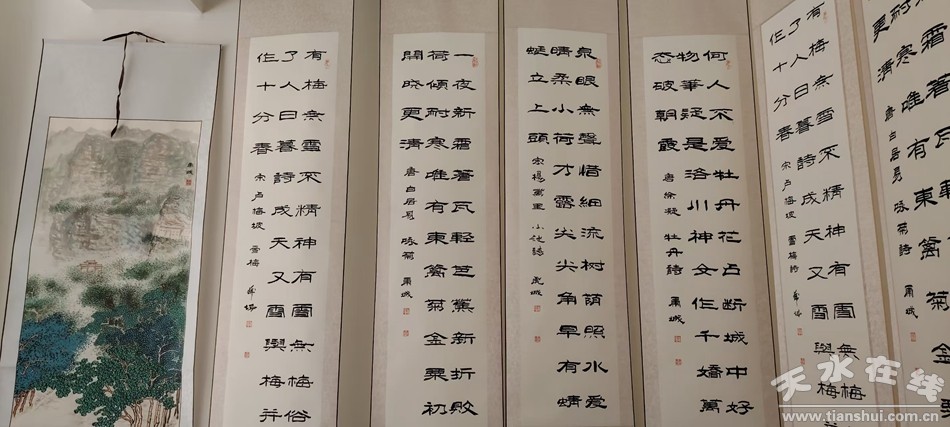 有梅無雪不精神有雪無梅俗
了人日暮詩成天又雪與梅并
作十分春 宋卢梅坡 雪梅
一夜新霜著瓦輕芭蕉新折敗
荷傾耐寒唯有東籬菊金粟初
開曉更清 唐白居易 咏菊
泉眼無聲惜細流树荫照水愛
晴柔小荷才露尖尖角早有蜻
蜓立上頭 宋楊萬里 小池詩
何人不愛牡丹花占断城中好
物華疑是洛川神女作千嬌萬
态破朝霞 唐徐凝 牡丹詩
有梅無雪不精神有雪無梅
了人日暮詩成天又雪與梅
作十分春 宋卢梅坡 雪梅詩
霜著瓦
耐寒唯有東籬菊金
更清 唐白居易 咏菊詩
天水在线
www.tianshui.com.cn